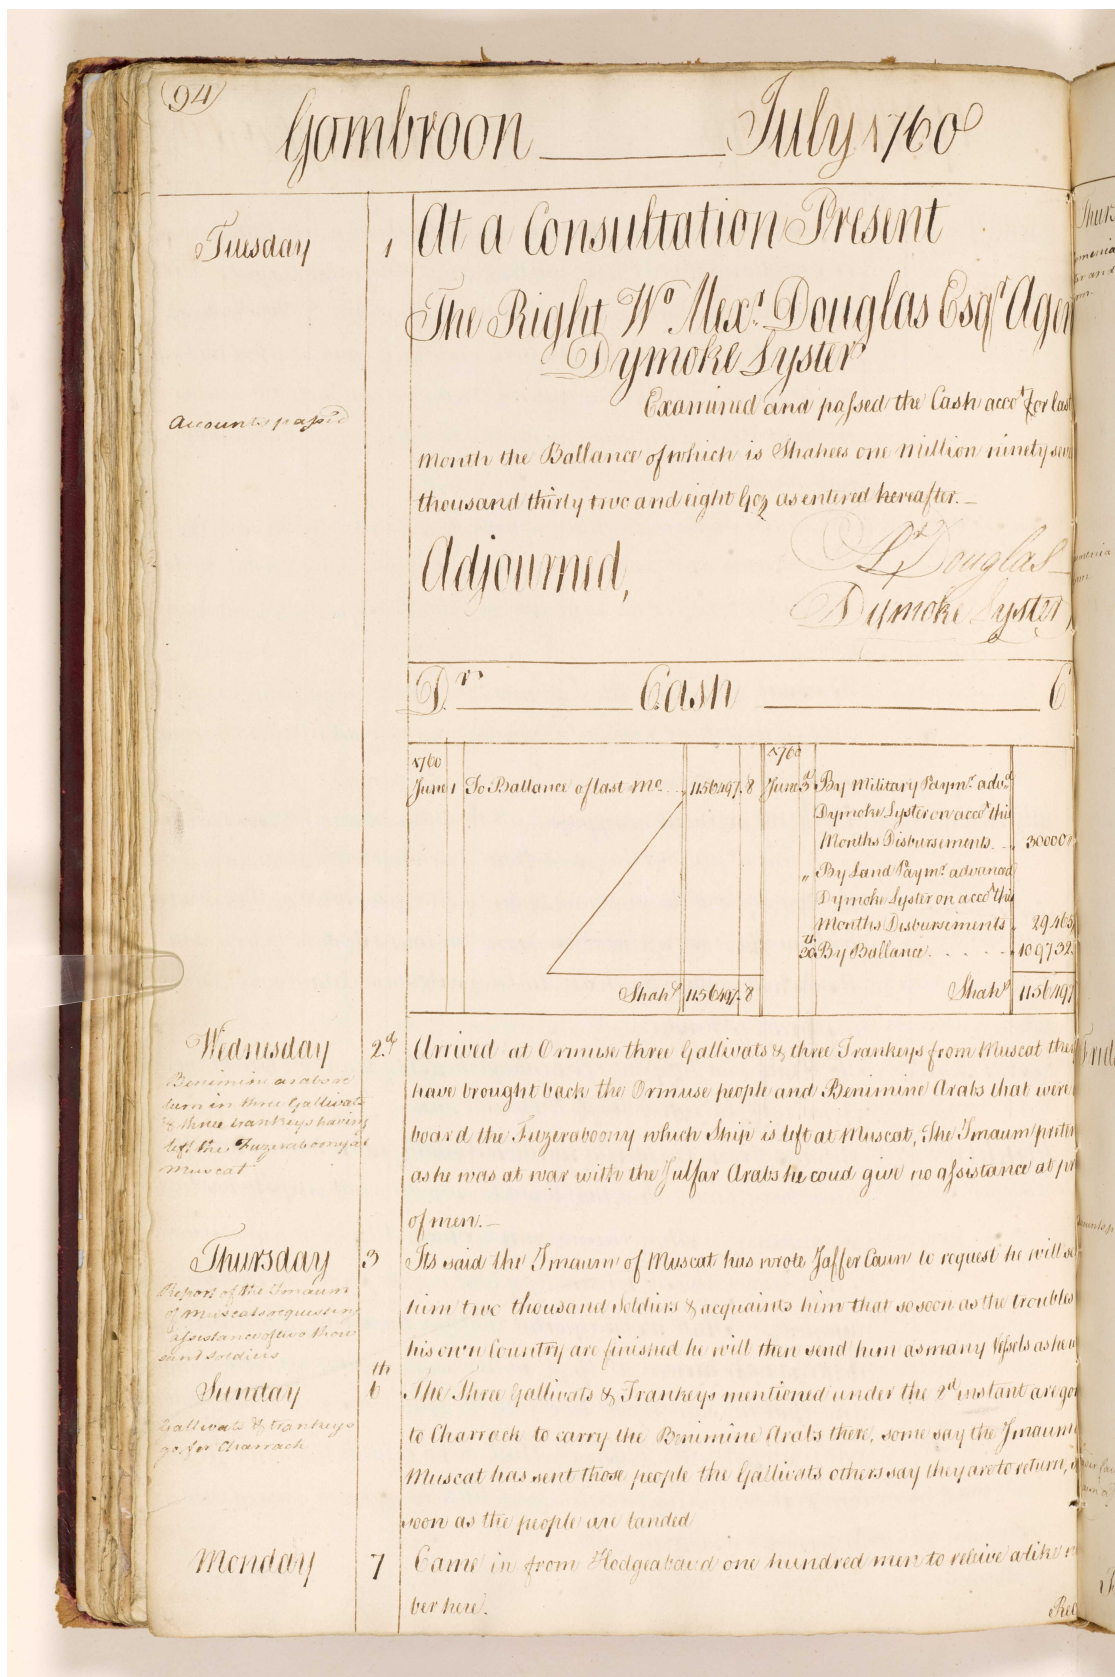 94
Gombroon July 1760
Tuesday 1 At a Consultation Present
The Right Wo. Alexr. Douglas Esqr Agen
Dymoke Lyster
Accounts pass'd
Examined and passed the Cash accot. for last
month the Ballance of which is Shahees one Million ninety seve
thousand thirty two and eight Goz as entered hereafter.
Adjourned,
Ar Douglas
Dymoke Lyster
Dr. Cash C
1760
June 1 To Ballance of last Mo. 1156497.8
Shahs 1156497.8
1760
June 3d By Military Paymr. advd.
Dymoke Lyster on accot this
Months Disbursements 30000
" By Land Paymr. advanced
Dymoke Lyster on accot this
Months Disbursements 29465
30th By Ballance 109732
Shahs 1156497
Wednesday 2d Arrived at Ormuse three Gallivats & three Trankeys from Muscat they
have brought back the Ormuse people and Benimine Arabs that were
board the Fuzeraboony which Ship is left at Muscat, The Imaum preten
as he was at war with the Julfar Arabs he coud give no assistance at pr
of men.
Benimine arabs re
turn in three Gallivats
& three trankeys having
left the Fuzeraboony at
Muscat
Thursday 3 Its said the Imaum of Muscat has wrote Jaffer Caun to request he will se
him two thousand Soldiers & acquaints him that so soon as the troubles
his own Country are finished he will then send him as many Vessels as he
Report of the Imaum
of Muscats requesting
assistance of two thou
sand soldiers
Sunday 6th The Three Gallivats & Trankeys mentioned under the 2d instant are go
to Charrack to carry the Benimine Arabs there, some say the Imaum
Muscat has sent those people the Gallivats others say they are to return,
soon as the people are landed
Gallivats & trankeys
go for Charrack
Monday 7 Came in from Hodgeabaud one hundred men to releive a like
ber here.
Rec